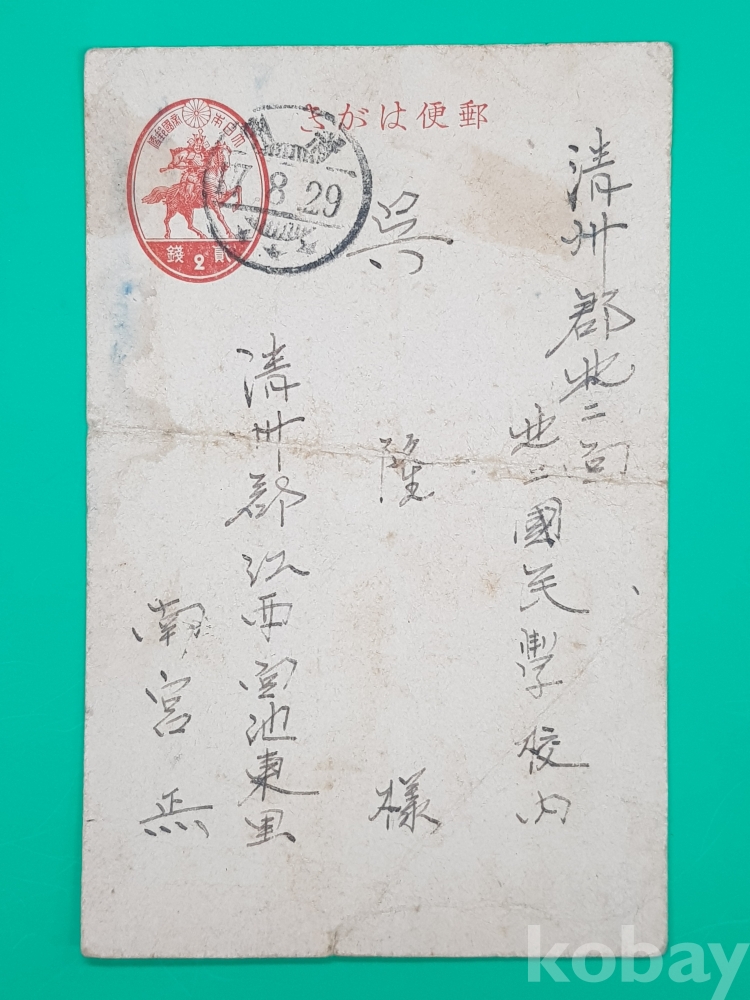 郵便はがき
大日本帝國郵便
貳2錢
7.8.29
清州郡北二面
北二國民學校内
呉 隆 様
清州郡江西面池東里
南宮
kobay